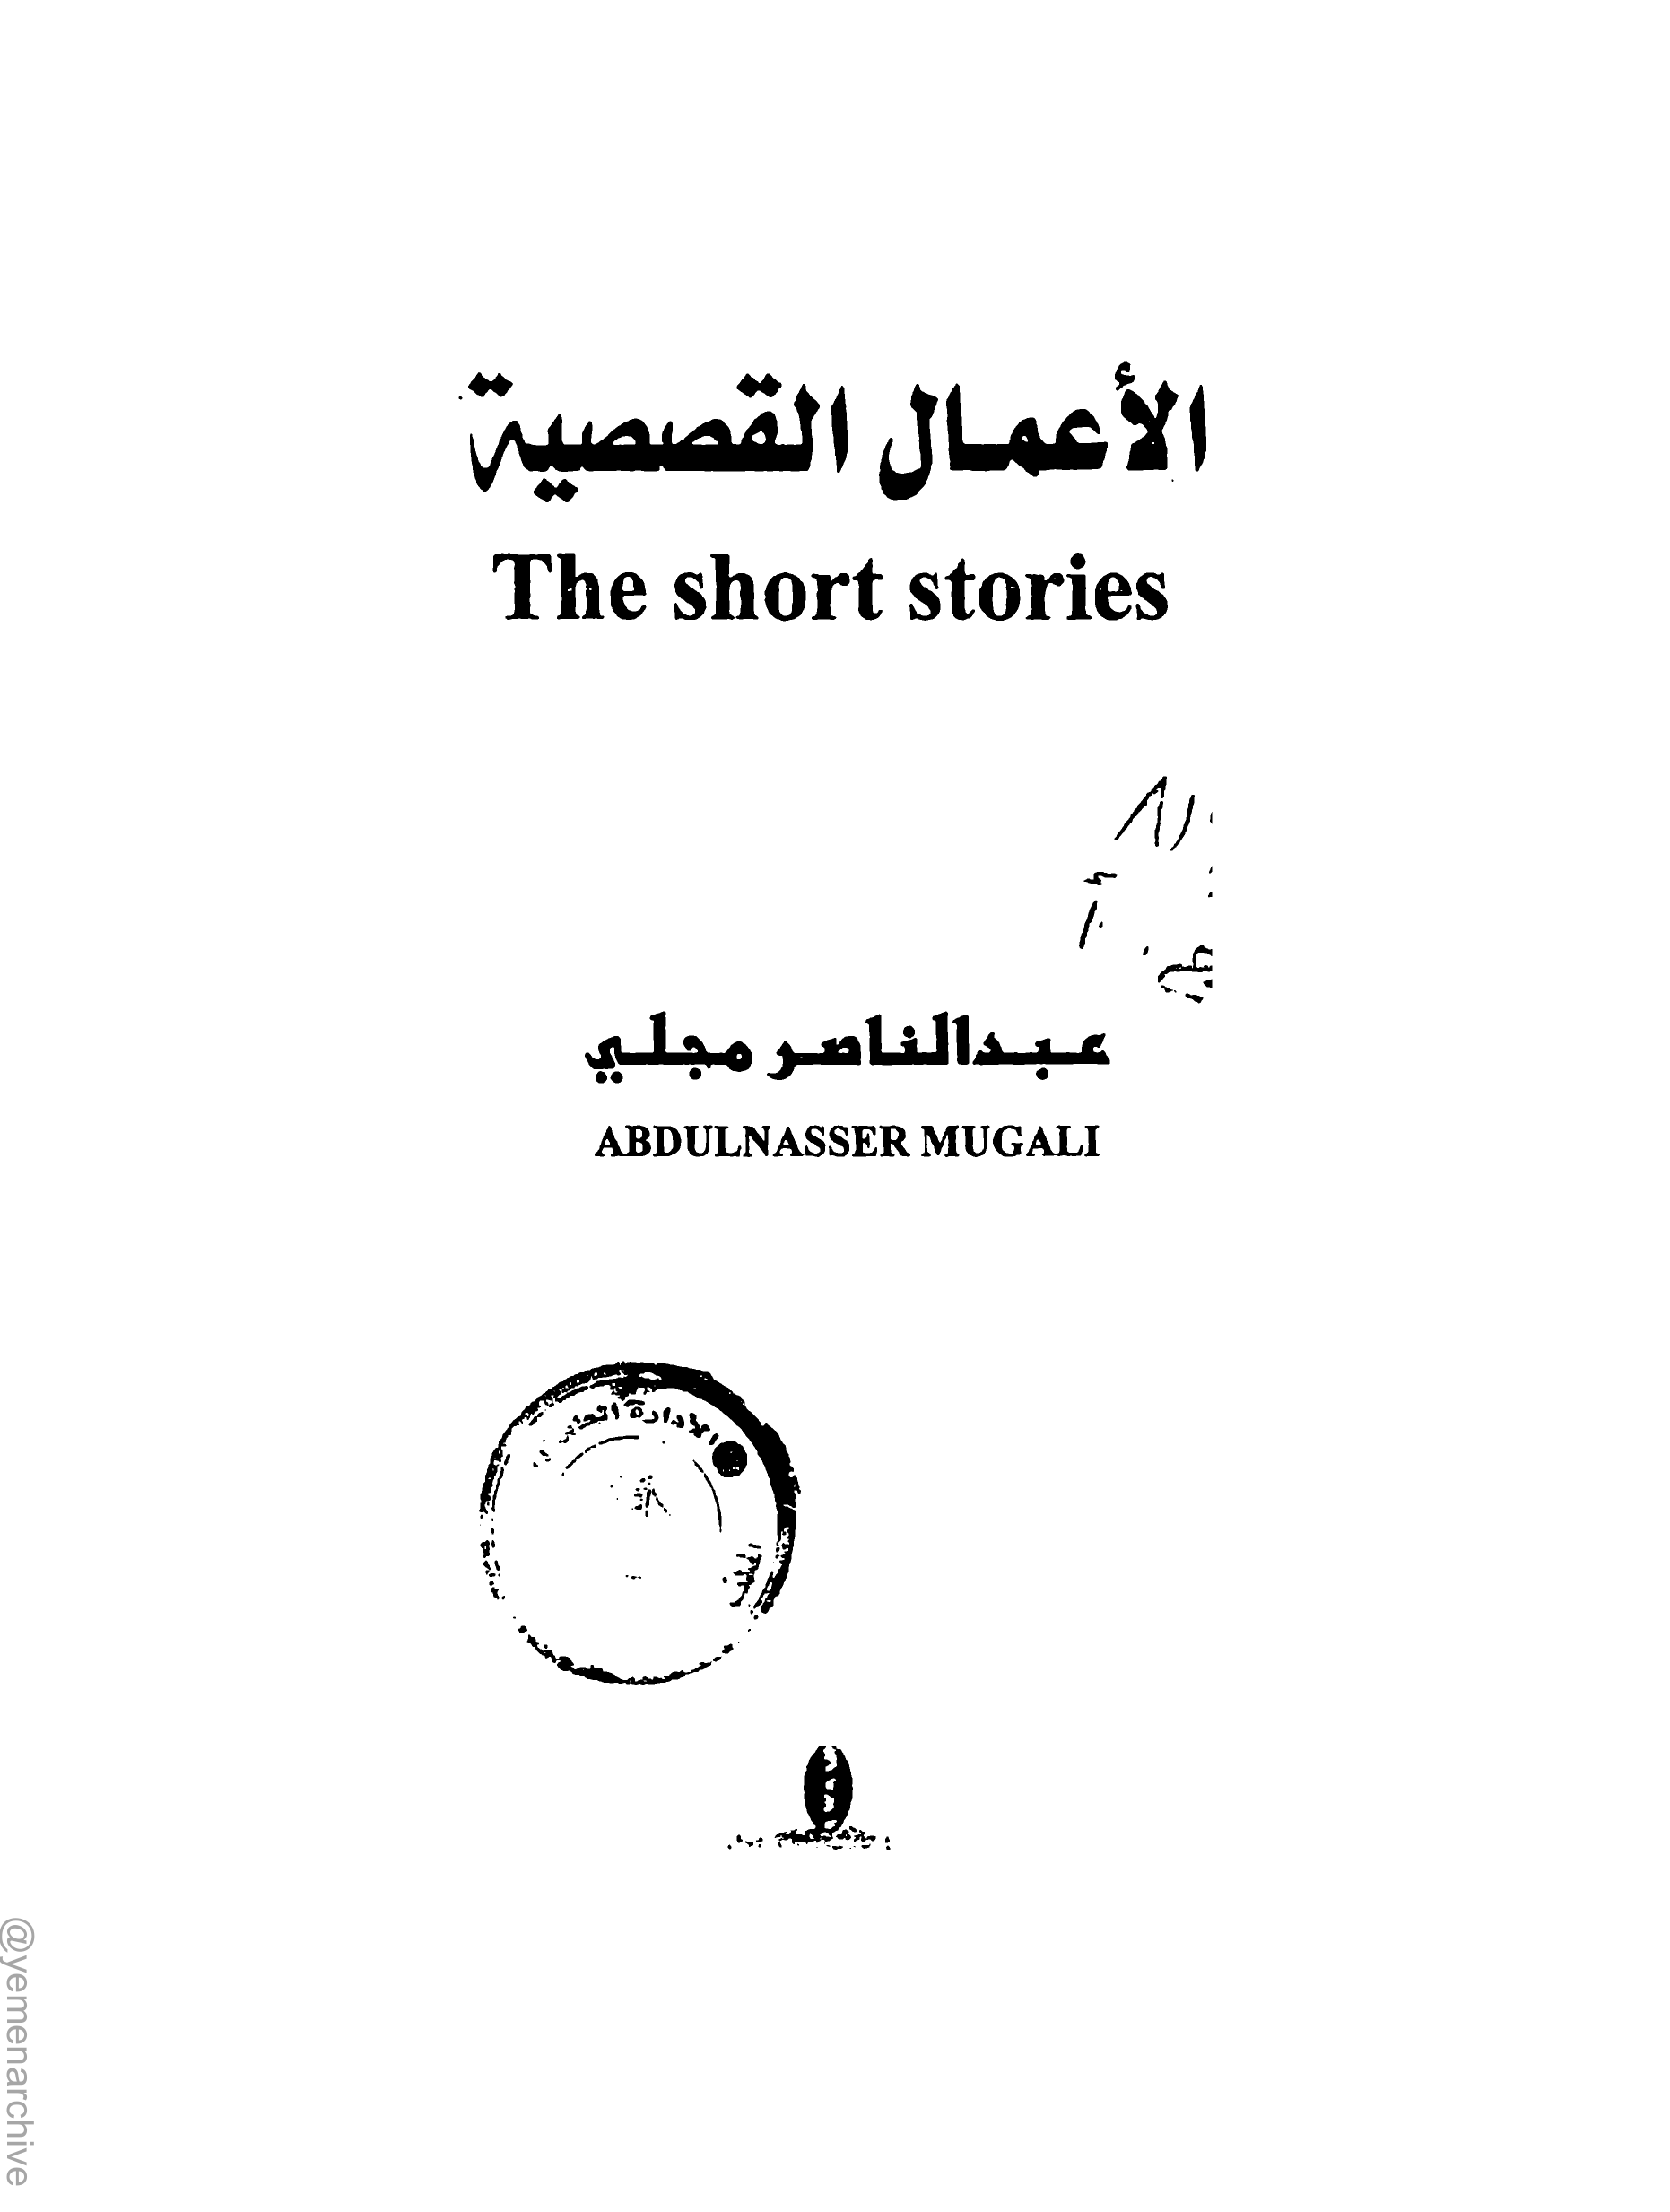 الأعمال القصصية
The short stories
عبدالناصر مجلي
ABDULNASSER MUGALI
@yemenarchive